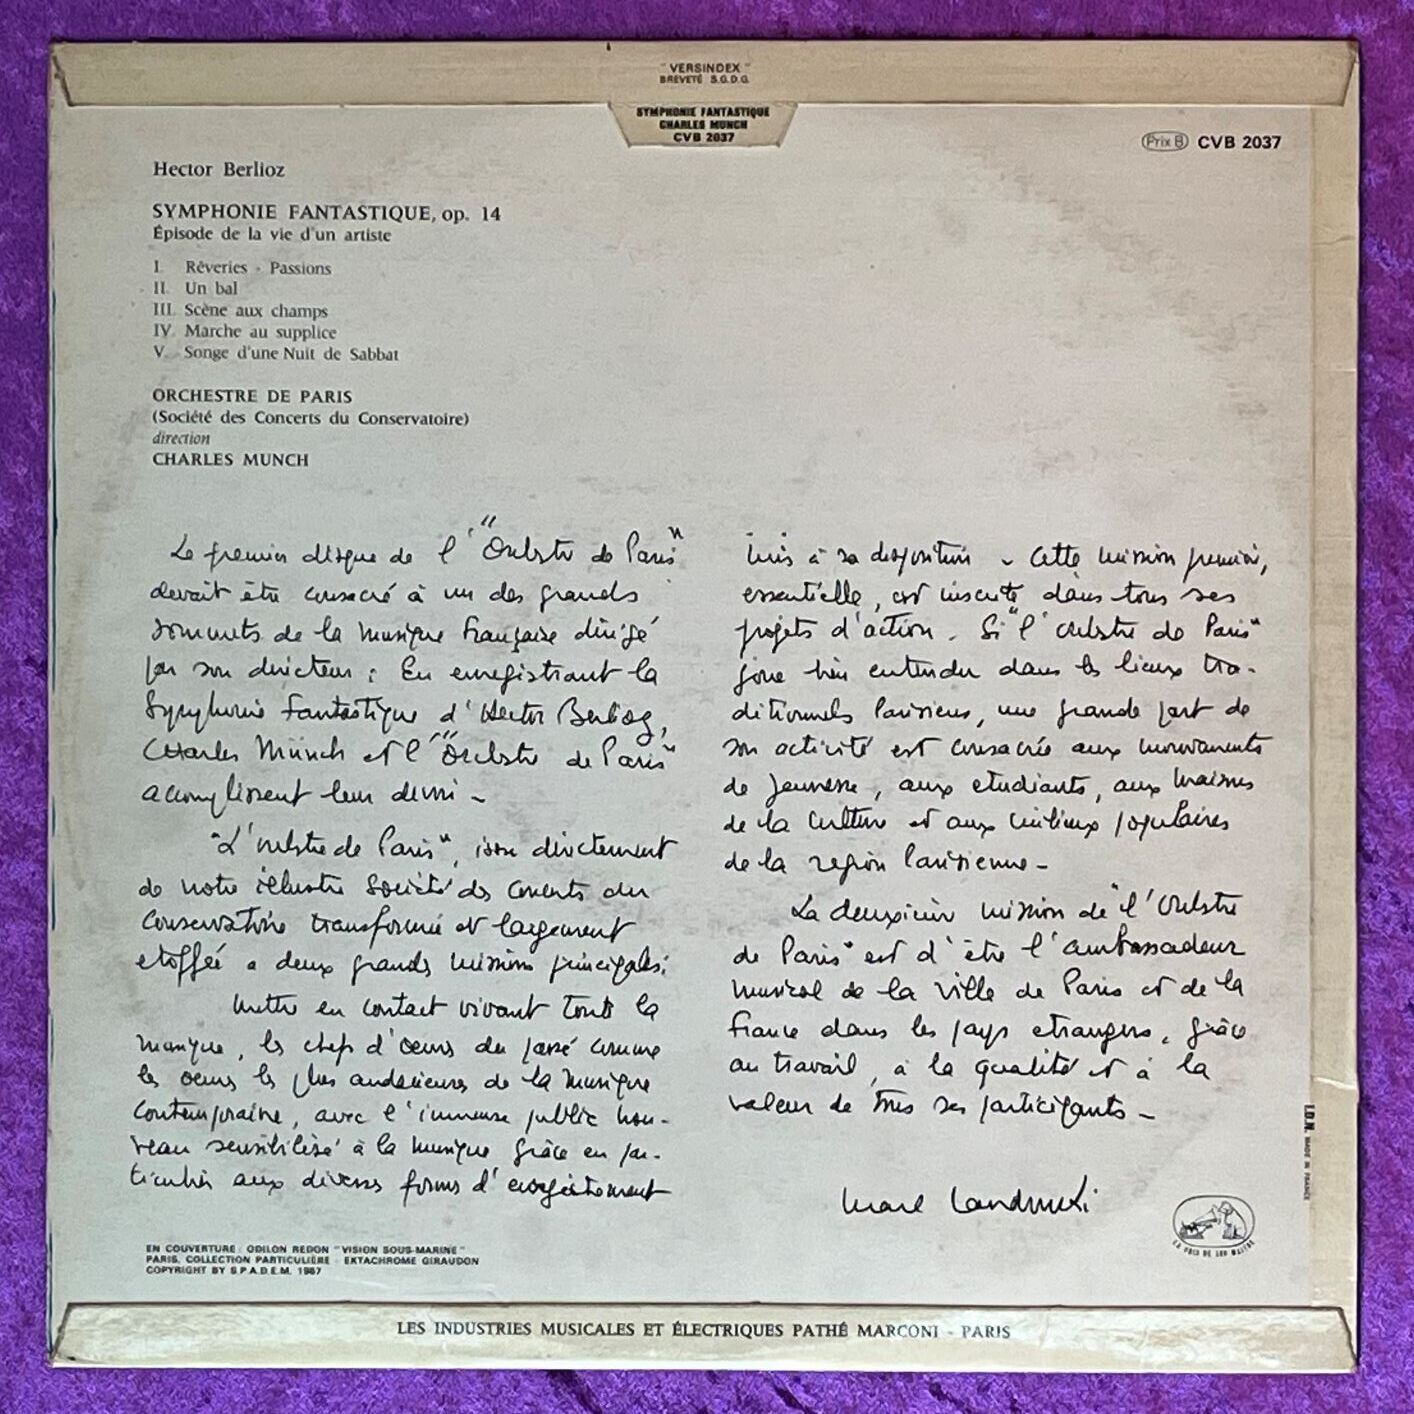 " VERSINDEX "
BREVETÉ S.G.D.G.
SYMPHONIE FANTASTIQUE
CHARLES MUNCH
CVB 2037
Prix B CVB 2037
Hector Berlioz
SYMPHONIE FANTASTIQUE, op. 14
Épisode de la vie d'un artiste
I. Rêveries - Passions
II. Un bal
III. Scène aux champs
IV. Marche au supplice
V. Songe d'une Nuit de Sabbat
ORCHESTRE DE PARIS
(Société des Concerts du Conservatoire)
direction
CHARLES MUNCH
Le premier disque de l' "Orchestre de Paris"
devait être consacré à un des grands
sommets de la musique française dirigé
par son directeur : En enregistrant la
Symphonie Fantastique d'Hector Berlioz,
Charles Münch et l' "Orchestre de Paris"
accomplissent leur devoir -
"L'orchestre de Paris", issu directement
de notre illustre Société des Concerts du
Conservatoire transformée et largement
etoffée a deux grandes missions principales:
Mettre en contact vivant toute la
musique, les chefs d'oeuvres du passé comme
les oeuvres les plus audacieuses de la musique
contemporaine, avec l'immense public nou-
veau sensibilisé à la musique grâce en par-
ticulier aux diverses formes d'enregistrement
mis à sa disposition - Cette mission première,
essentielle, est inscrite dans tous ses
projets d'action. Si "l'orchestre de Paris"
joue bien entendu dans les lieux tra-
ditionnels Parisiens, une grande part de
son activité est consacrée aux mouvements
de Jeunesse, aux etudiants, aux maisons
de la culture et aux milieux populaires
de la region Parisienne -
La deuxième mission de "l'Orchestre
de Paris" est d'être l'ambassadeur
musical de la ville de Paris et de la
France dans les pays etrangers, grâce
au travail, à la qualité et à la
valeur de tous ses participants -
Marcel Landowski
EN COUVERTURE : ODILON REDON "VISION SOUS-MARINE"
PARIS, COLLECTION PARTICULIÈRE - EKTACHROME GIRAUDON
COPYRIGHT BY S.P.A.D.E.M. 1967
I.D.N. MADE IN FRANCE
LA VOIX DE SON MAITRE
LES INDUSTRIES MUSICALES ET ÉLECTRIQUES PATHÉ MARCONI - PARIS